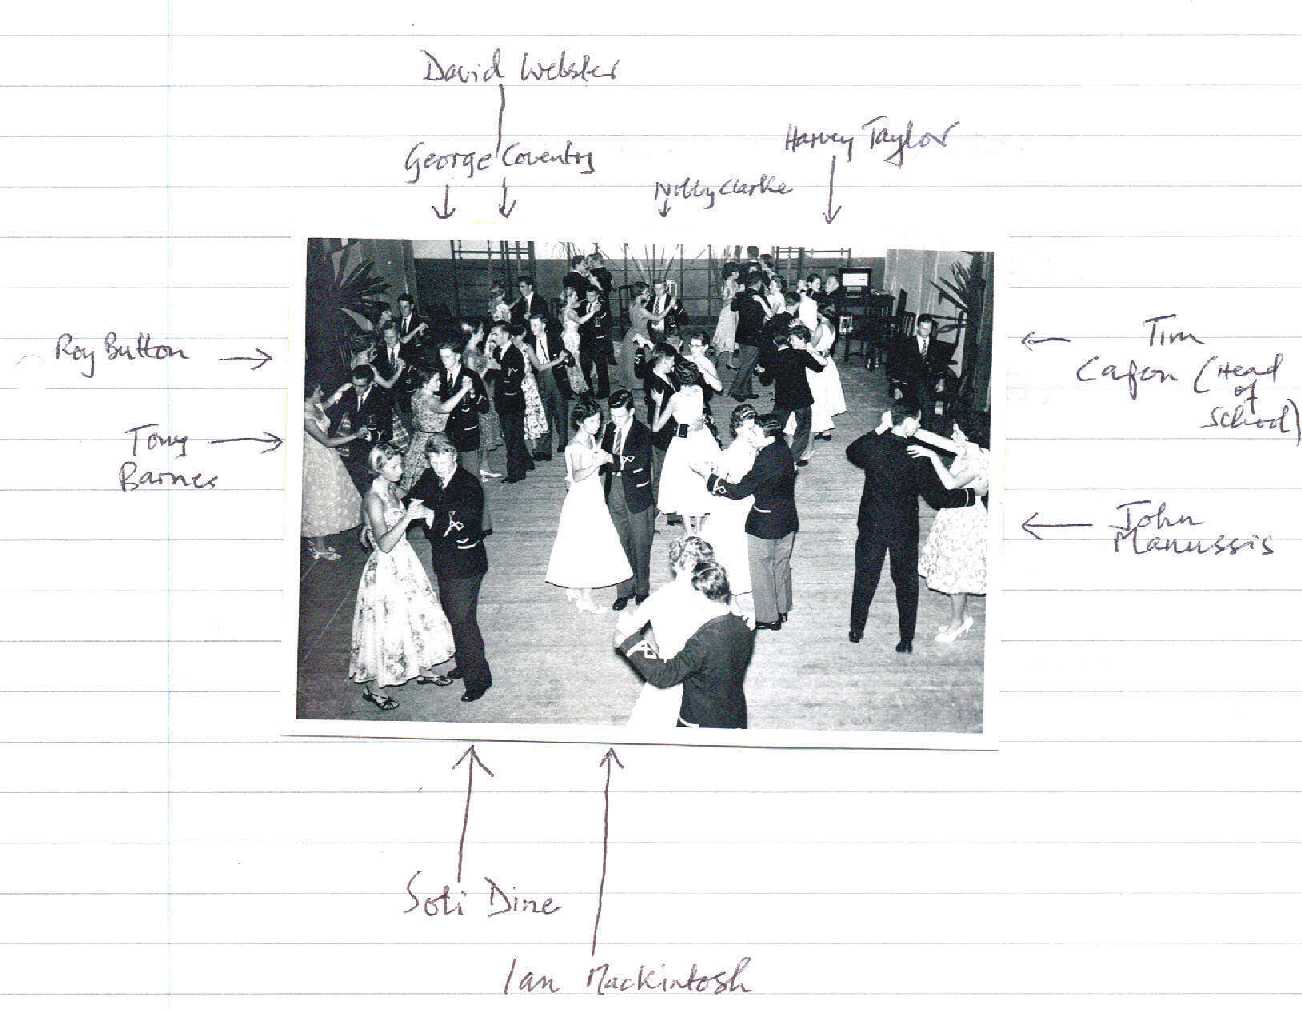 David Webster
George Coventry
Harvey Taylor
Nobby Clarke
Roy Button
Tim
Cafon (Head
of
School)
Tony
Barnes
John
Manussis
Soti Dine
Ian Mackintosh